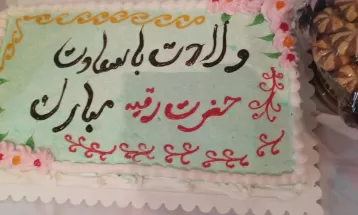 ولادت با سعادت
حضرت رقیه مبارک